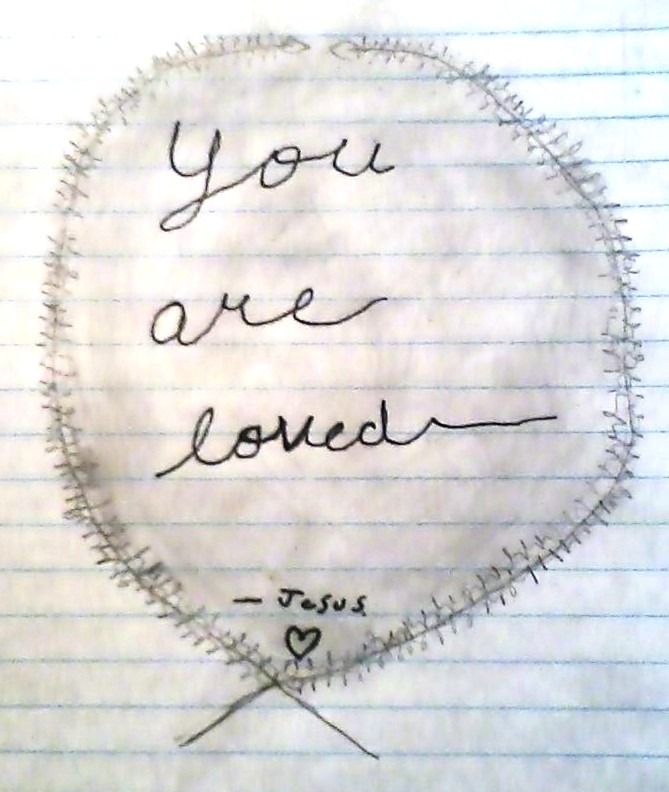 You
are
loved
- Jesus